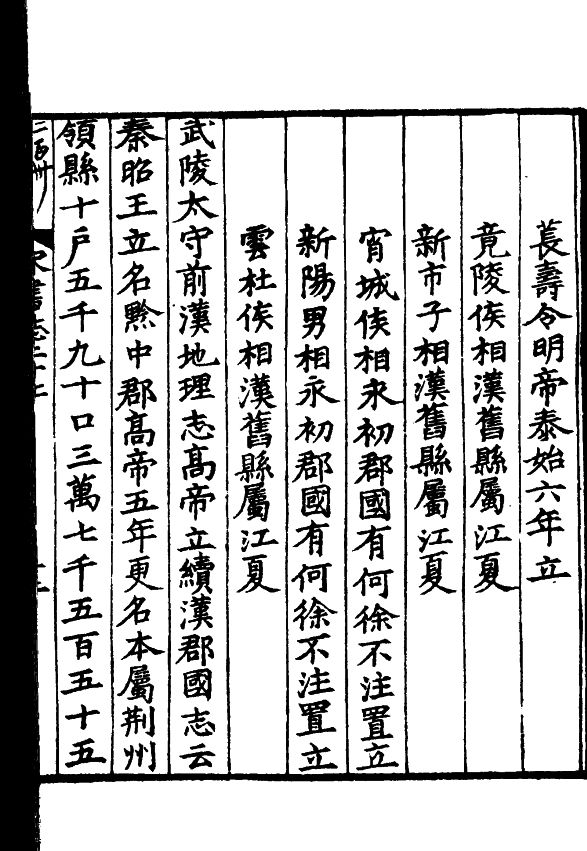 萇壽令明帝泰始六年立
竟陵侯相漢舊縣屬江夏
新市子相漢舊縣屬江夏
宵城侯相永初郡國有何徐不注置立
新陽男相永初郡國有何徐不注置立
雲杜侯相漢舊縣屬江夏
武陵太守前漢地理志高帝立續漢郡國志云
秦昭王立名黔中郡高帝五年更名本屬荆州
領縣十戶五千九十口三萬七千五百五十五